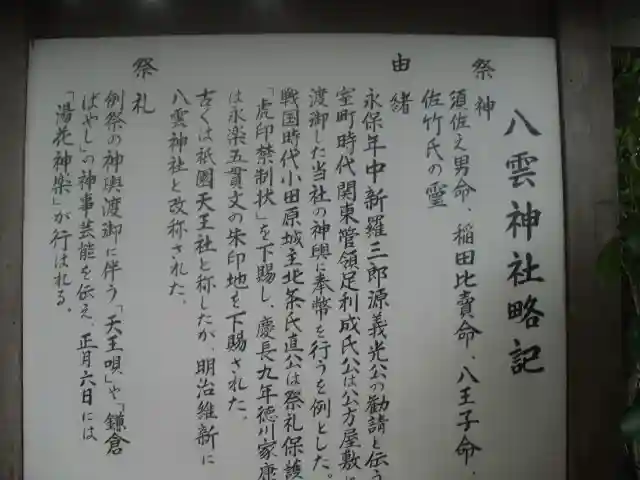 八雲神社略記
祭神
須佐之男命、稲田比賣命、八王子命、
佐竹氏の霊
由緒
永保年中新羅三郎源義光公の勧請と伝う
室町時代関東管領足利成氏公は公方屋敷に
渡御した当社の神輿に奉幣を行うを例とした。
戦国時代小田原城主北条氏直公は祭礼保護
「虎印禁制状」を下賜し、慶長九年徳川家康
は永楽五貫文の朱印地を下賜された。
古くは祇園天王社と称したが、明治維新に
八雲神社と改称された。
祭礼
例祭の神輿渡御に伴う「天王唄」や「鎌倉
ばやし」の神事芸能を伝え、正月六日には
「湯花神楽」が行はれる。